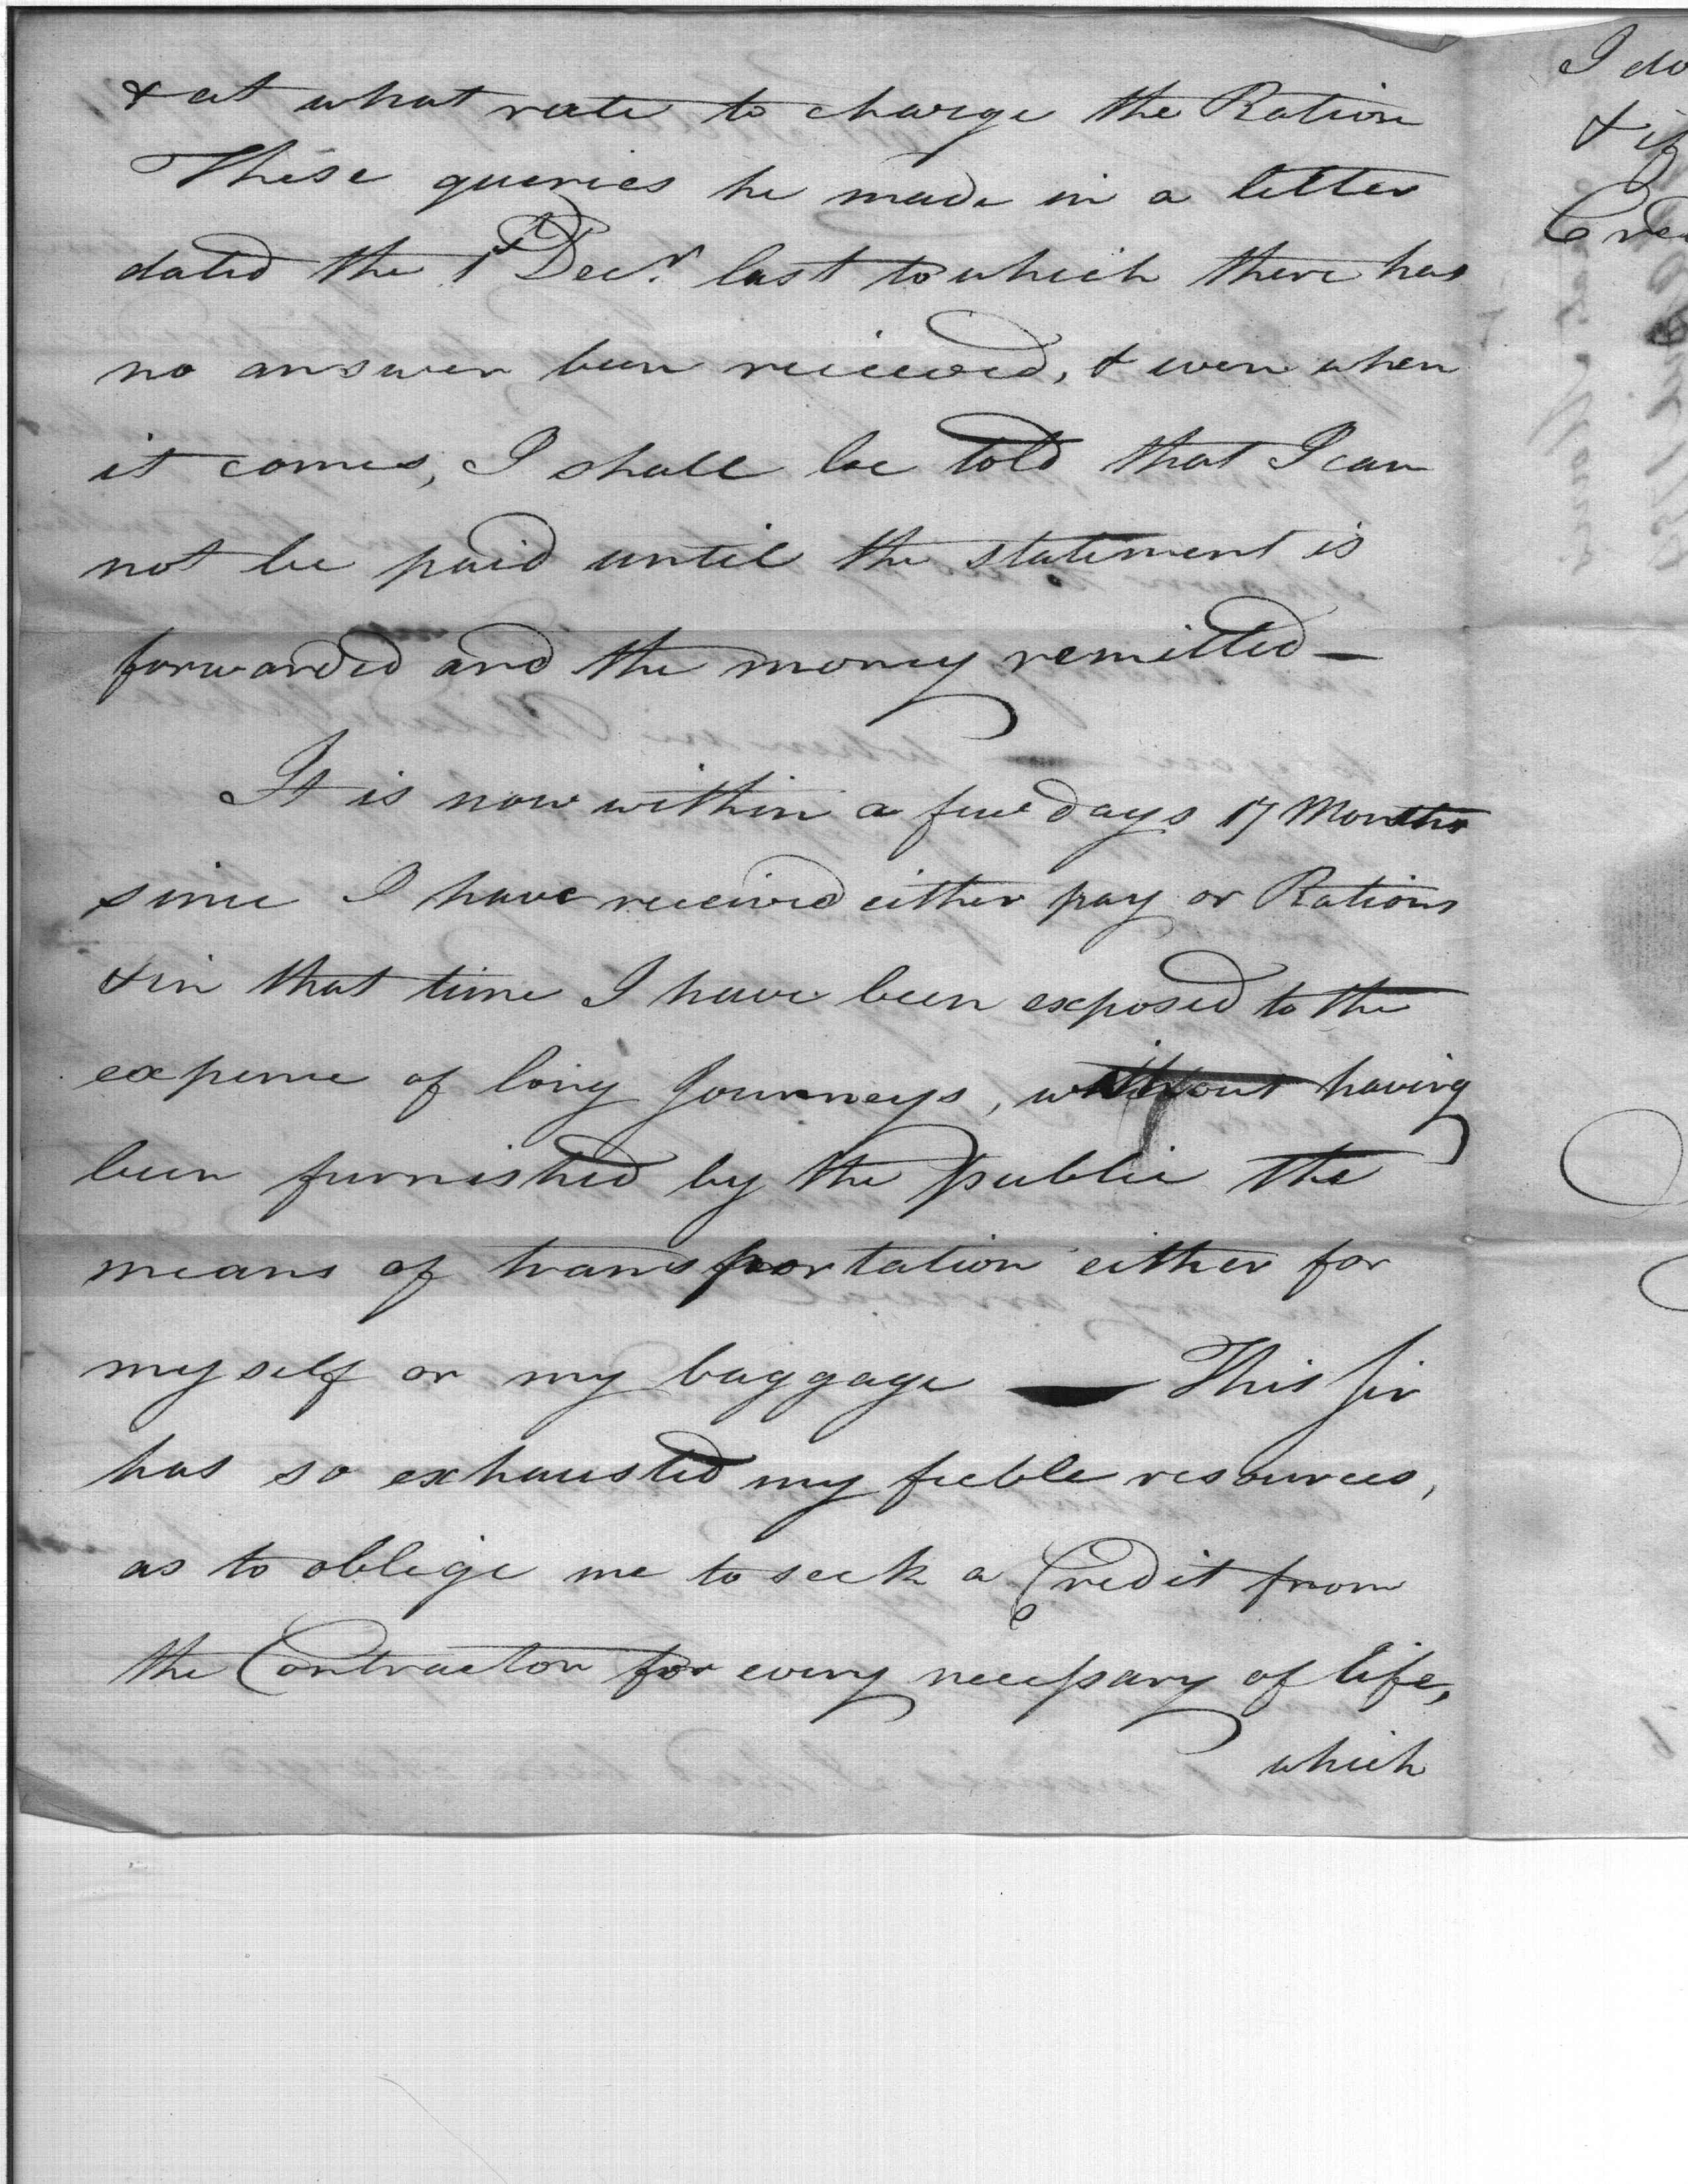 & at what rate to charge the Ration
These queries he made in a letter
dated the 1st Decr. last to which there has
no answer been received, & even when
it comes, I shall be told that I can
not be paid until the statement is
forwarded and the money remitted —
It is now within a few days 17 Months
since I have received either pay or Rations
& in that time I have been exposed to the
expense of long Journeys, without having
been furnished by the public the
means of transportation either for
myself or my baggage — This Sir
has so exhausted my feeble resources,
as to oblige me to seek a Credit from
the Contractor for every necessary of life,
which
I do
& if